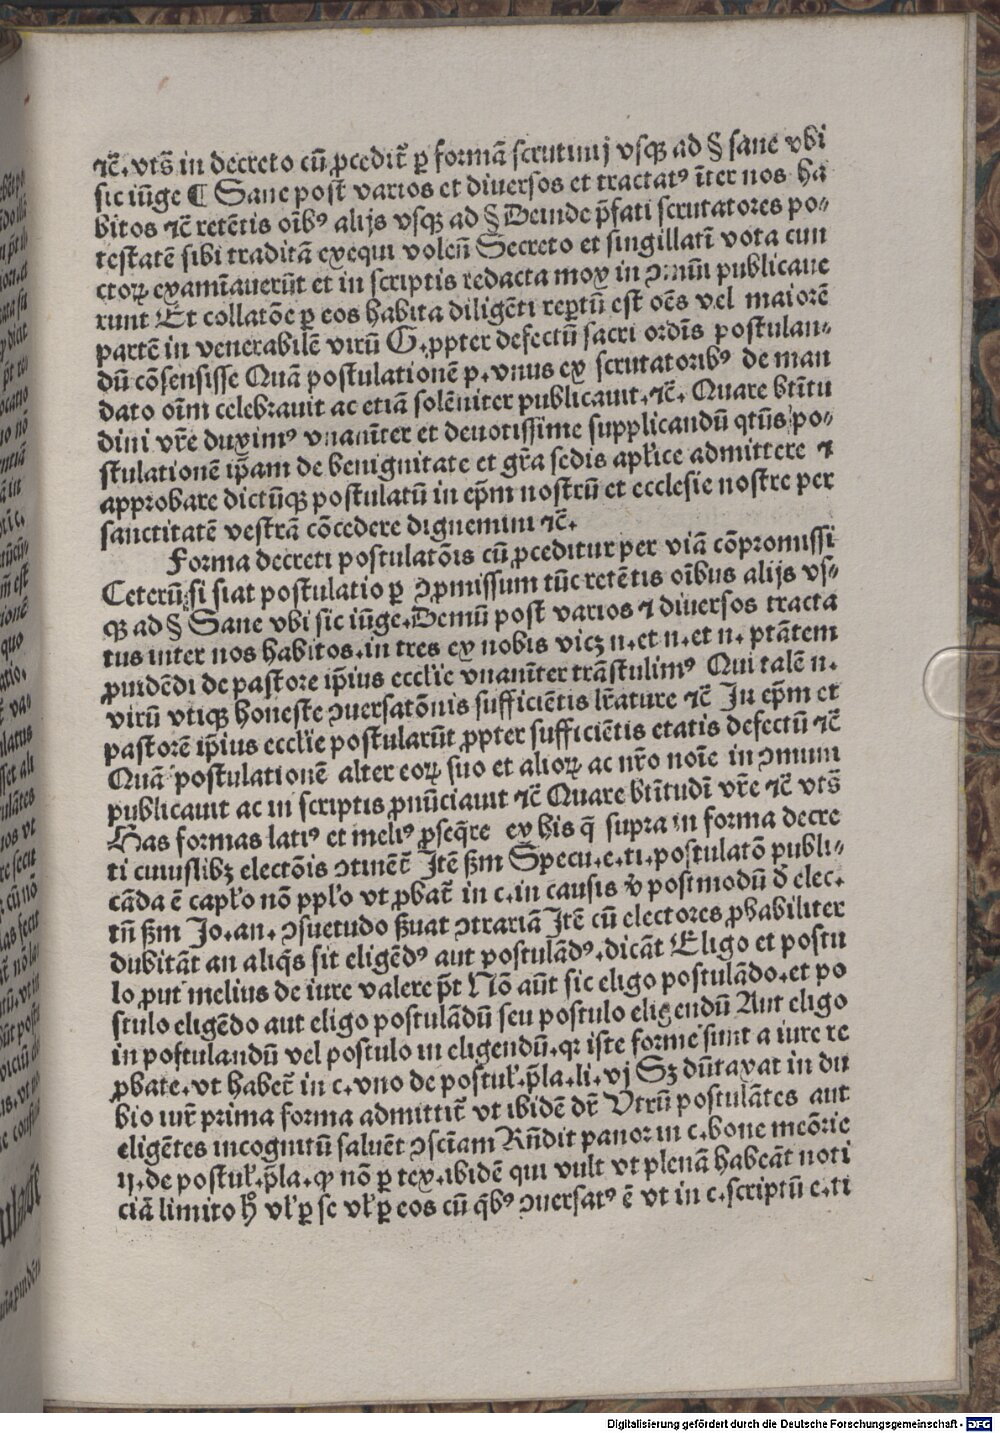 ⁊c̄. vts̄ in decreto cū ꝓcedit᷑ ꝑ formā scrutinij vsqꝫ ad § sane vbi
sic iūge ¶ Sane post varios et diuersos et tractatꝰ īter nos ha
bitos ⁊c̄ retētis oībꝰ alijs vsqꝫ ad § Deinde p̄fati scrutatores po⸗
testatē sibi traditā exequi volen̄ Secreto et singillatī vota cun
ctoꝝ examīauerūt et in scriptis redacta mox in ꝯmūi publicaue
runt Et collatōe ꝑ eos habita diligēti reꝑtū est oēs vel maiorē
partē in venerabilē virū G. ꝓpter defectū sacri ordīs postulan⸗
dū cōsensisse Quā postulationē p. vnus ex scrutatoribꝰ de man
dato oīm celebrauit ac etiā solēniter publicauit. ⁊c̄. Quare btītu
dini vr̄e duximꝰ vnanīter et deuotissime supplicandū qtūs po⸗
stulationē ip̄am de benignitate et gr̄a sedis apl'ice admittere ⁊
approbare dictūqꝫ postulatū in ep̄m nostrū et ecclesie nostre per
sanctitatē vestrā cōcedere dignemini ⁊c̄.
Forma decreti postulatōis cū ꝓceditur per viā cōpromissi
Ceterū si fiat postulatio ꝑ ꝯpromissum tūc retētis oībus alijs vs⸗
qꝫ ad § Sane vbi sic iūge. Demū post varios ⁊ diuersos tracta
tus inter nos habitos. in tres ex nobis vicꝫ n. et n. et n. ptātem
ꝓuidēdi de pastore ip̄ius eccl'ie vnanīter trāstulimꝰ Qui talē n.
virū vtiqꝫ honeste ꝯuersatōnis sufficiētis lr̄ature ⁊c̄ In ep̄m et
pastorē ip̄ius eccl'ie postularūt ꝓpter sufficiētis etatis defectū ⁊c̄
Quā postulationē alter eoꝝ suo et alioꝝ ac nr̄o noīe in ꝯmuni
publicauit ac in scriptis ꝓnūciauit ⁊c̄ Quare btītudī vr̄e ⁊c̄ vts̄
Has formas latiꝰ et meliꝰ ꝓseq̄re ex his q̄ supra in forma decre
ti cuiuslibꝫ electōis ꝯtinēt᷑ Itē ẜm Specu. e. ti. postulatō publi⸗
cāda ē capl'o nō ppl'o vt ꝓbat᷑ in c. in causis ꝟ postmodū đ elec.
tn̄ ẜm Jo. an. ꝯsuetudo ẜuat ꝯtrariā Itē cū electores ꝓbabiliter
dubitāt an aliq̄s sit eligēdꝰ aut postulādꝰ. dicāt Eligo et postu
lo ꝓut melius de iure valere p̄t Nō aūt sic eligo postulādo. et po
stulo eligēdo aut eligo postulādū seu postulo eligendū Aut eligo
in postulandū vel postulo in eligendū. qꝛ iste forme sunt a iure re
ꝓbate. vt habet᷑ in c. vno de postul'. p̄la. li. vj Sꝫ dūtaxat in du
bio iur̄ prima forma admittit᷑ vt ibidē dr̄ Vtrū postulātes aut
eligētes incognitū saluēt ꝯsciam Rn̄dit panor in c. bone meōrie
ij. de postul'. p̄la. ꝙ nō ꝑ tex. ibidē qui vult vt plenā habeāt noti
ciā limito ħ vl' ꝑ se vl' ꝑ eos cū q̄bꝰ ꝯuersatꝰ ē vt in c. scriptū e. ti
Digitalisierung gefördert durch die Deutsche Forschungsgemeinschaft - DFG